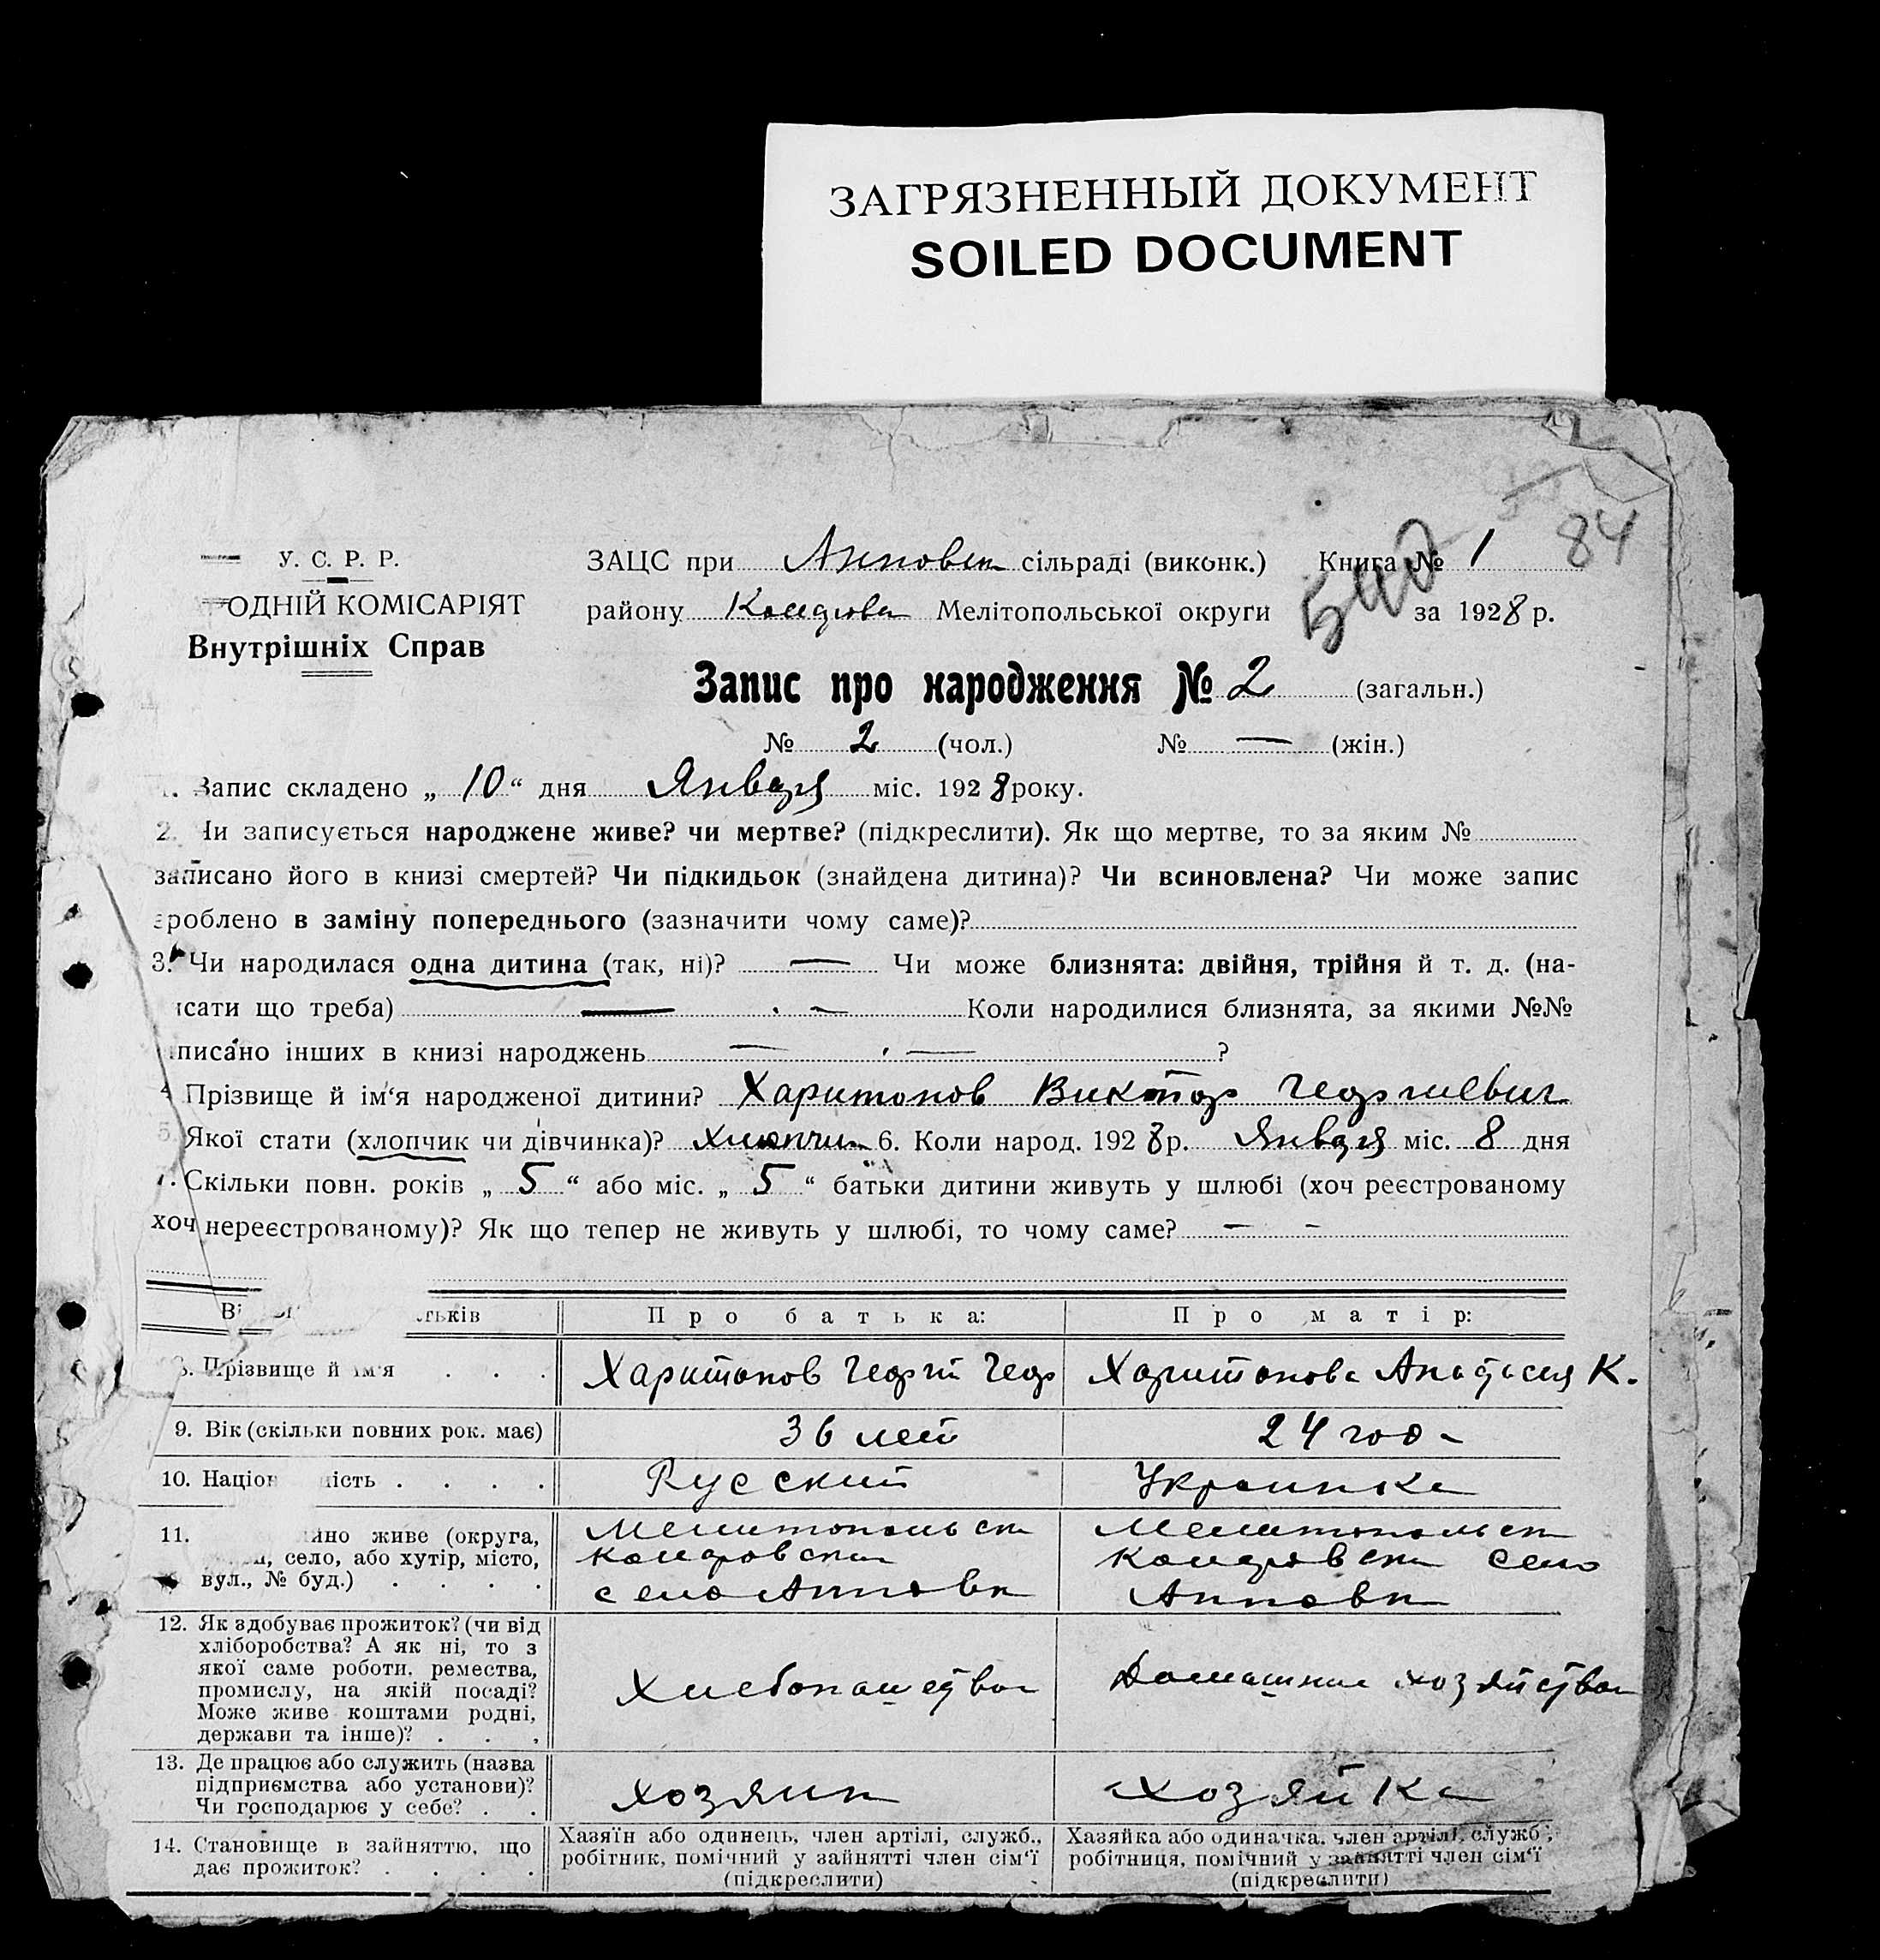 ЗАГРЯЗНЕННЫЙ ДОКУМЕНТ
SOILED DOCUMENT
84
540
У. С. Р. Р.
ОДНІЙ КОМІСАРІЯТ
Внутрішніх Справ
ЗАЦС при Анновск сільраді (виконк.) Книга № 1
району Мелітопольської округи за 1928 р.
Запис про народження № 2 (загальн.)
№ 2 (чол.) № — (жін.)
1. Запис складено „ 10 “ дня Января міс. 1928 року.
2. Чи записується народжене живе? чи мертве? (підкреслити). Як що мертве, то за яким №
записано його в книзі смертей? Чи підкидьок (знайдена дитина)? Чи всиновлена? Чи може запис
зроблено в заміну попереднього (зазначити чому саме)?
3. Чи народилася одна дитина (так, ні)? — Чи може близнята: двійня, трійня й т. д. (на-
исати що треба) — — Коли народилися близнята, за якими №№
писано інших в книзі народжень — — ?
4 Прізвище й ім‘я народженої дитини? Харитонов Виктор Георгиевич
5. Якої стати (хлопчик чи дівчинка)? хлопчик 6. Коли народ. 1928 р. Января міс. 8 дня
7. Скільки повн. років „ 5 “ або міс. „ 5 “ батьки дитини живуть у шлюбі (хоч реєстрованому
хоч нереєстрованому)? Як що тепер не живуть у шлюбі, то чому саме? — —
тьків Про батька: Про матір:
8. Прізвище й ім‘я . . . Харитонов Георгий Геор Харитонова Анастасия К.
9. Вік (скільки повних рок. має) 36 лет 24 год
10. Націон ність . . . . Русский Украинка
11. йно живе (округа, Мелитопольск Мелитопольск
село, або хутір, місто, село
вул., № буд.) . . . . село Анновк Анновк
12. Як здобуває прожиток? (чи від
хліборобства? А як ні, то з
якої саме роботи, ремества,
промислу, на якій посаді? Хлебопашество Домашнее хозяйство
Може живе коштами родні,
держави та інше)? . . .
13. Де працює або служить (назва
підприємства або установи)? хозяин хозяйка
Чи господарює у себе? . .
14. Становище в зайняттю, що Хазяїн або одинець, член артілі, служб., Хазяйка або одиначка, член артілі, служб.,
дає прожиток? . . . . робітник, помічний у зайнятті член сім‘ї робітниця, помічний у зайнятті член сім‘ї
(підкреслити) (підкреслити)